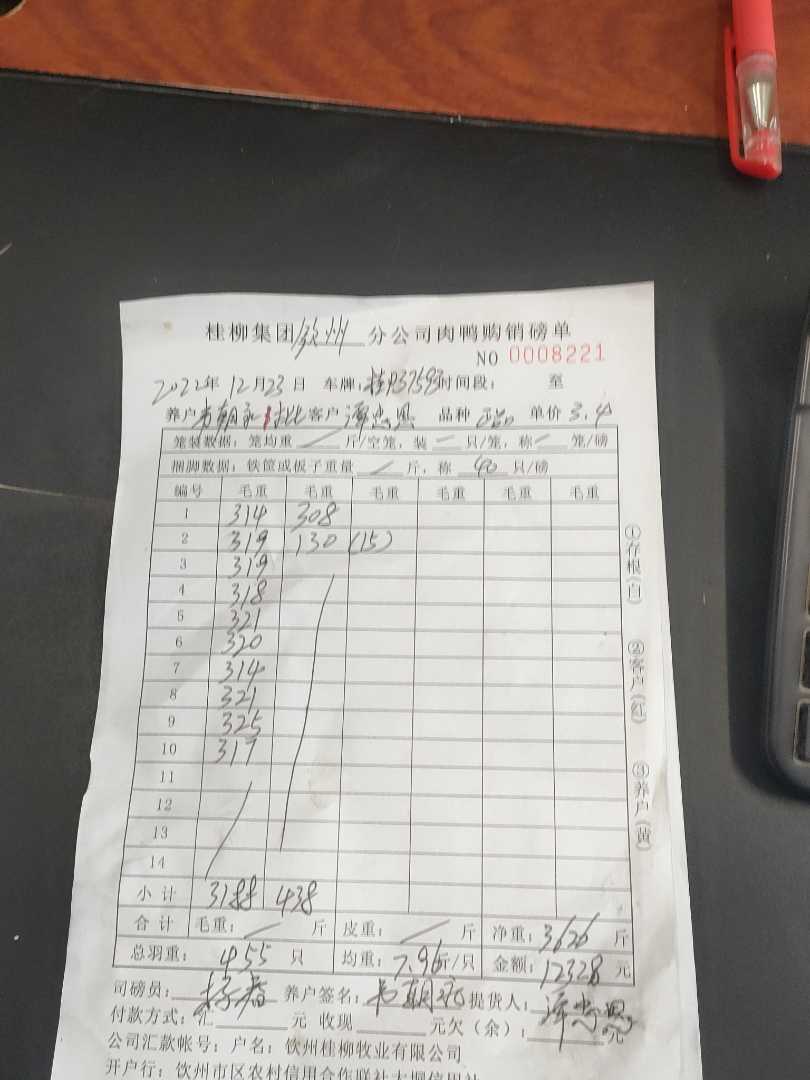 桂柳集团钦州分公司肉鸭购销磅单
NO 0008221
2022年12月23日 车牌:桂P37593时间段: 至
养户 韦朝 客户 品种 单价 3.4
笼装数据:笼均重 斤/空笼,装 只/笼,称 笼/磅
捆脚数据:铁筐或板子重量 斤,称 40 只/磅
编号 毛重 毛重 毛重 毛重 毛重 毛重
1 314 308
2 319 130 (15)
3 319
4 318
5 321
6 320
7 314
8 321
9 325
10 317
11
12
13
14
小计 3188 438
合计 毛重: 斤 皮重: 斤 净重:3626 斤
总羽重: 455 只 均重:7.96斤/只 金额:12328 元
司磅员: 养户签名:韦朝 提货人:
付款方式:汇 元 收现 元欠(余): 元
公司汇款帐号:户名:钦州桂柳牧业有限公司
开户行:钦州市区农村信用合作联社大垌信用社
①存根(白)
②客户(红)
③养户(黄)